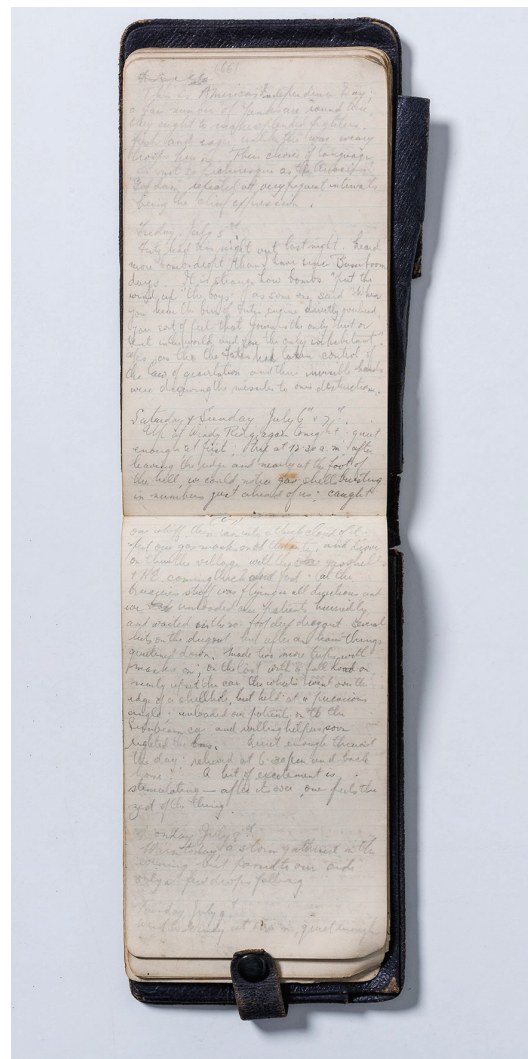 (66)
This is America's Independence Day,
a fair number of Yanks are round this
they ought to
Their choice of language
is not
repeated at very frequent intervals
being the chief expression.
Friday July 5th
Fritz had an night out last night. Heard
more bombs dropt than I have since Busseboom
days. It is strange how bombs "put the
wind up" the boys, as some one said "When
you hear the bird of Fritz engine directly overhead
you sort of feel that yours is the only hut or
tent in the world and you the only inhabitant",
also, as tho the Fates had taken control of
the law of gravitation and their invisible hands
were drawing the missiles to ones destruction.
Saturday & Sunday July 6th & 7th
Up at Windy Ridge again Coney & I. quiet
enough at first. trip at 12-30 a.m. after
leaving the ridge and nearly at the foot of
the hill, we could notice gas shells bursting
in numbers just ahead of us: caught
one whiff then ran into a thick cloud of it
put our gas masks on at and drove
on thro the village with the gas shells
& H.E. coming thick and fast: at the
stuff was flying in all directions and
we unloaded our patients hurriedly
and waited in the six foot deep dugout several
hits on the dugout but after an hour things
quietened down. Made two more trips with
masks on, on the last with a full load on
nearly upset the car the wheels went over the
edge of a shellhole, but held at a precarious
angle: unloaded our patients on to the
Sunbeam car and willing helpers soon
righted the bus. Quiet enough thruout
the day: relieved at 6-30pm and back
home. A bit of excitement is
stimulating — after it is over, one feels the
zest of the thing.
Monday July 8th
Warm today a storm gathered in the
evening but passed to our side
only a few drops falling
Tuesday July 9th
quiet enough